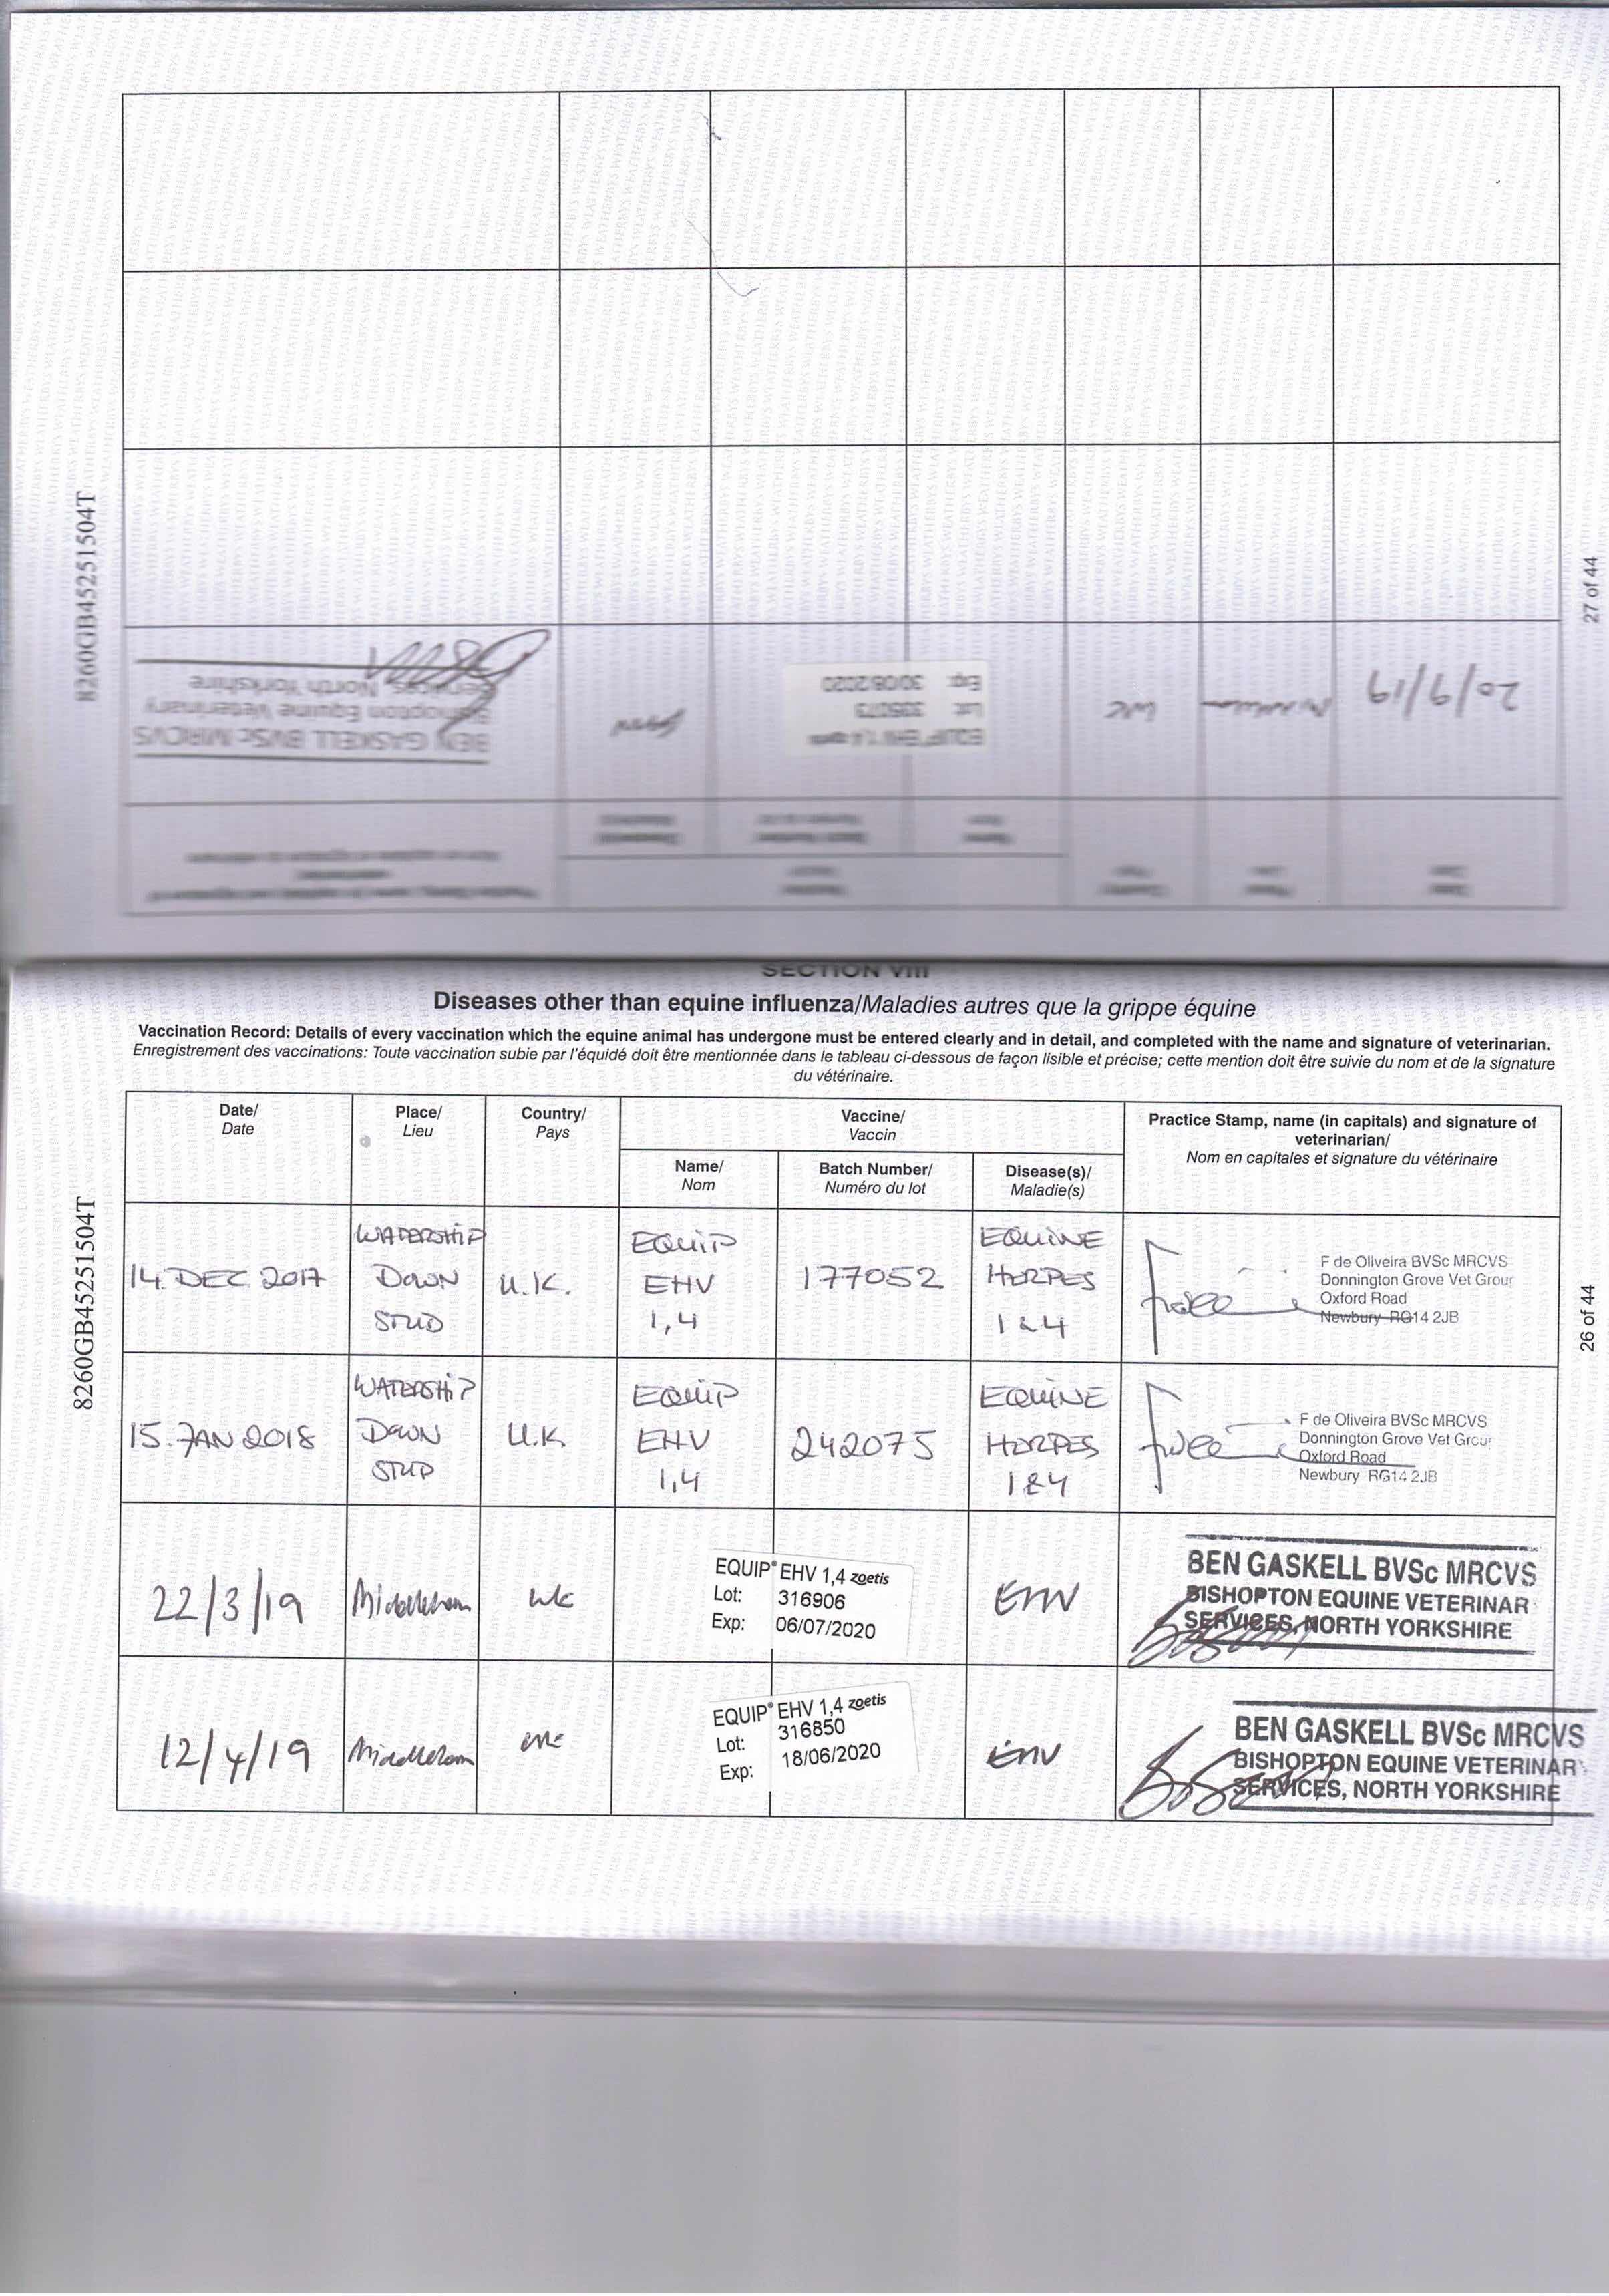 8260GB45251504T
27 of 44
20/9/19
UK
EQUIP EHV 1,4
Lot: 335073
Exp: 30/08/2020
BEN GASKELL BVSc MRCVS
Bishopton Equine Veterinary
Services, North Yorkshire
SECTION VIII
Diseases other than equine influenza/Maladies autres que la grippe équine
Vaccination Record: Details of every vaccination which the equine animal has undergone must be entered clearly and in detail, and completed with the name and signature of veterinarian.
Enregistrement des vaccinations: Toute vaccination subie par l'équidé doit être mentionnée dans le tableau ci-dessous de façon lisible et précise; cette mention doit être suivie du nom et de la signature
du vétérinaire.
8260GB45251504T
26 of 44
Date/
Date
Place/
Lieu
Country/
Pays
Vaccine/
Vaccin
Name/
Nom
Batch Number/
Numéro du lot
Disease(s)/
Maladie(s)
Practice Stamp, name (in capitals) and signature of
veterinarian/
Nom en capitales et signature du vétérinaire
14. DEC 2017
WATERSHIP
DOWN
STUD
U.K.
EQUIP
EHV
1,4
177052
EQUINE
HERPES
1 & 4
F de Oliveira BVSc MRCVS
Donnington Grove Vet Group
Oxford Road
Newbury RG14 2JB
15. JAN 2018
WATERSHIP
DOWN
STUD
U.K.
EQUIP
EHV
1,4
242075
EQUINE
HERPES
1 & 4
F de Oliveira BVSc MRCVS
Donnington Grove Vet Group
Oxford Road
Newbury RG14 2JB
22/3/19
Middleham
UK
EQUIP® EHV 1,4 zoetis
Lot: 316906
Exp: 06/07/2020
EHV
BEN GASKELL BVSc MRCVS
BISHOPTON EQUINE VETERINAR
SERVICES, NORTH YORKSHIRE
12/4/19
Middleham
UK
EQUIP® EHV 1,4 zoetis
Lot: 316850
Exp: 18/06/2020
EHV
BEN GASKELL BVSc MRCVS
BISHOPTON EQUINE VETERINAR
SERVICES, NORTH YORKSHIRE